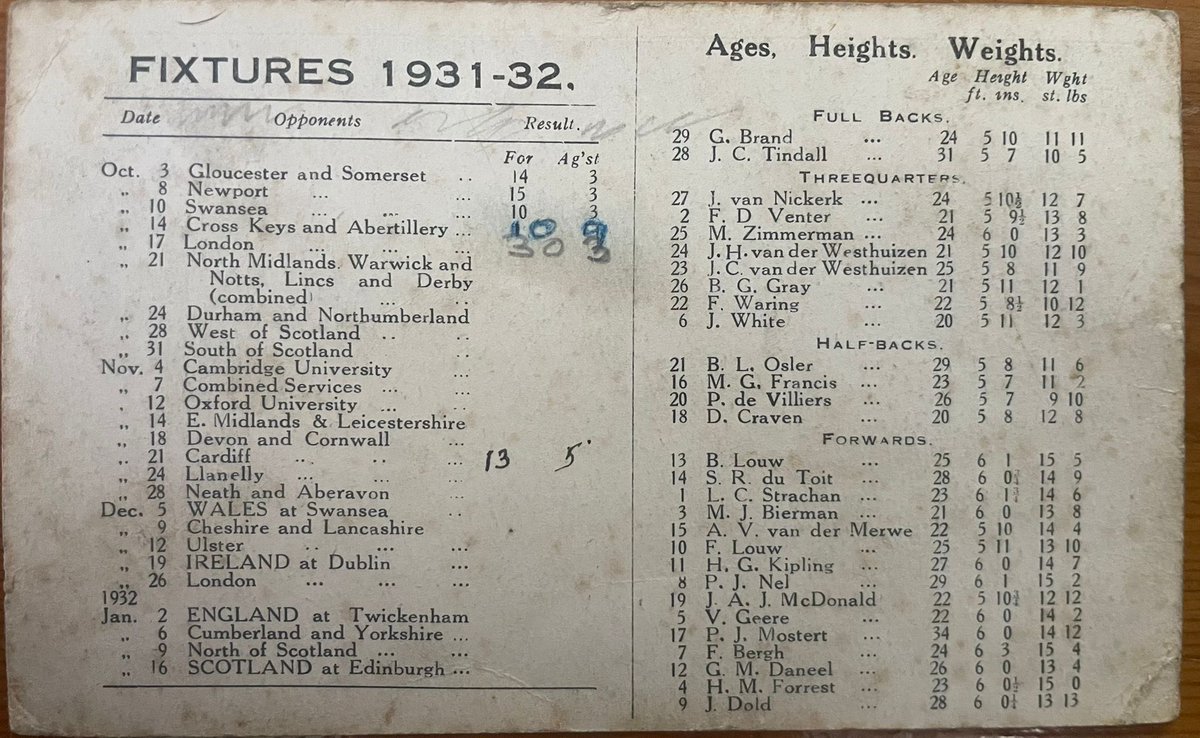 FIXTURES 1931-32.
Date Opponents Result.
For Ag'st
Oct. 3 Gloucester and Somerset .. 14 3
„ 8 Newport ... ... 15 3
„ 10 Swansea ... ... 10 3
„ 14 Cross Keys and Abertillery ... 10 9
„ 17 London ... ... .. 30 3
„ 21 North Midlands. Warwick and
Notts, Lincs and Derby
(combined) ... ..
„ 24 Durham and Northumberland
„ 28 West of Scotland .. ..
„ 31 South of Scotland ..
Nov. 4 Cambridge University ...
„ 7 Combined Services ... ...
„ 12 Oxford University ... ..
„ 14 E. Midlands & Leicestershire
„ 18 Devon and Cornwall ...
„ 21 Cardiff .. .. ... 13 5
„ 24 Llanelly ... ... ...
„ 28 Neath and Aberavon ...
Dec. 5 WALES at Swansea ..
„ 9 Cheshire and Lancashire
„ 12 Ulster .. ... ...
„ 19 IRELAND at Dublin ...
„ 26 London ... ... ...
1932
Jan. 2 ENGLAND at Twickenham
„ 6 Cumberland and Yorkshire ...
„ 9 North of Scotland ... ...
„ 16 SCOTLAND at Edinburgh ...
Ages, Heights. Weights.
Age Height Wght
ft. ins. st. lbs
FULL BACKS.
29 G. Brand ... 24 5 10 11 11
28 J. C. Tindall ... 31 5 7 10 5
THREEQUARTERS.
27 J. van Nickerk ... 24 5 10½ 12 7
2 F. D Venter ... 21 5 9½ 13 8
25 M. Zimmerman ... 24 6 0 13 3
24 J. H. van der Westhuizen 21 5 10 12 10
23 J. C. van der Westhuizen 25 5 8 11 9
26 B. G. Gray ... 21 5 11 12 1
22 F. Waring ... 22 5 8½ 10 12
6 J. White ... 20 5 11 12 3
HALF-BACKS.
21 B. L. Osler ... 29 5 8 11 6
16 M. G. Francis ... 23 5 7 11 2
20 P. de Villiers ... 26 5 7 9 10
18 D. Craven ... 20 5 8 12 8
FORWARDS.
13 B. Louw ... 25 6 1 15 5
14 S. R. du Toit ... 28 6 14 9
1 L. C. Strachan ... 23 6 14 6
3 M. J. Bierman ... 21 6 0 13 8
15 A. V. van der Merwe 22 5 10 14 4
10 F. Louw ... 25 5 11 13 10
11 H. G. Kipling ... 27 6 0 14 7
8 P. J. Nel ... 29 6 1 15 2
19 J. A. J. McDonald 22 5 10¾ 12 12
5 V. Geere ... 22 6 0 14 2
17 P. J. Mostert ... 34 6 0 14 12
7 F. Bergh ... 24 6 3 15 4
12 G. M. Daneel ... 26 6 0 13 4
4 H. M. Forrest ... 23 6 0½ 15 0
9 J. Dold ... 28 6 0¼ 13 13